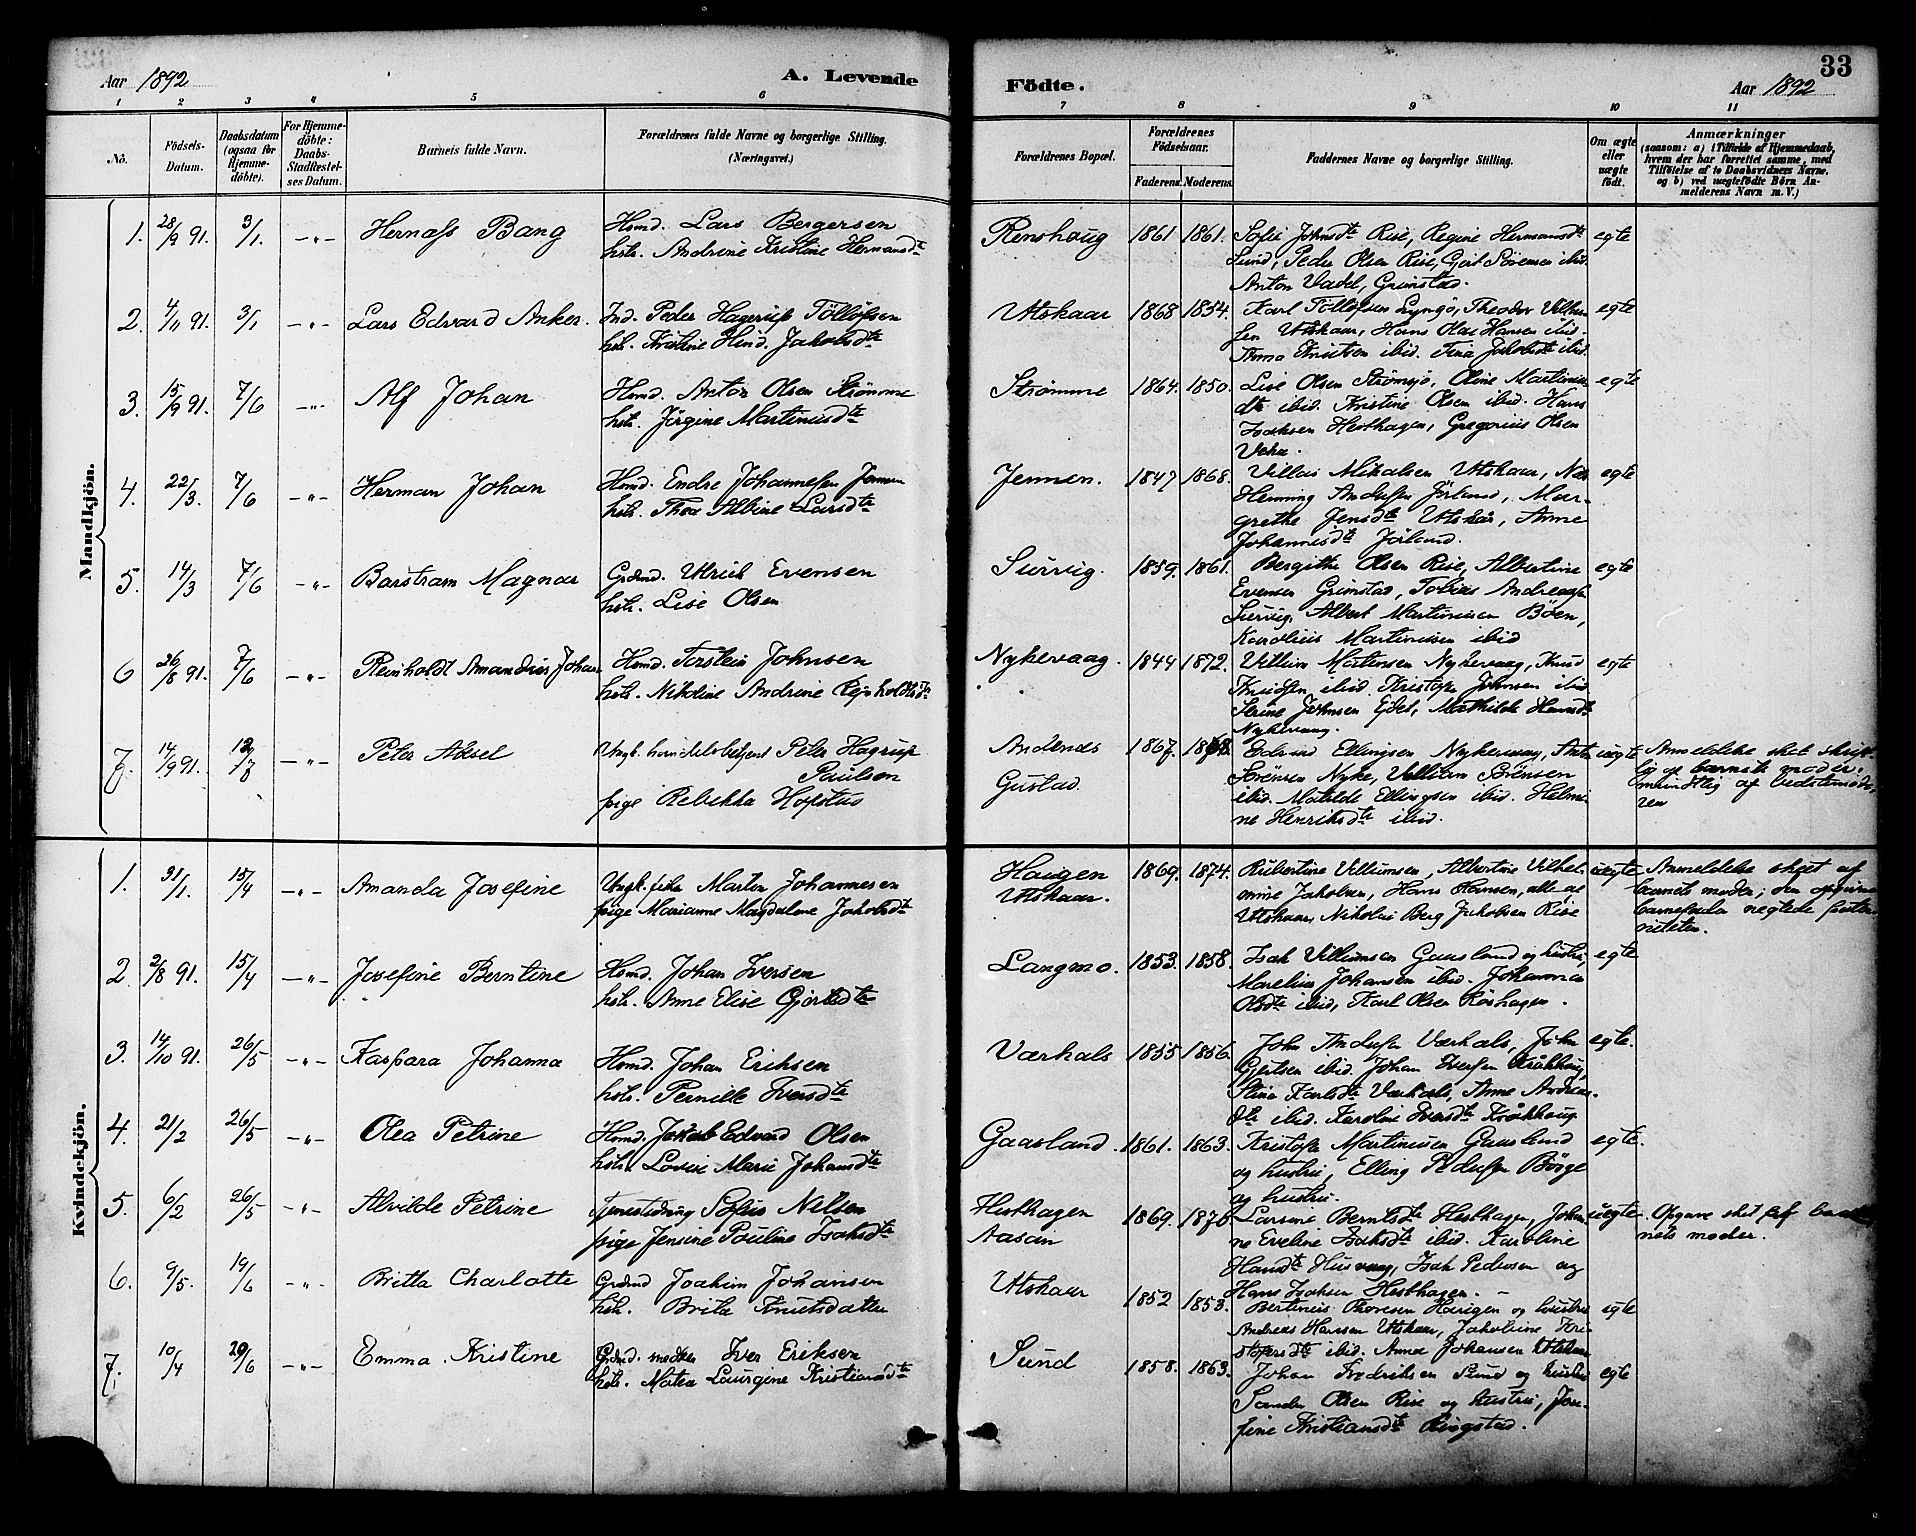 Aar 1892
A. Levende
Födte.
33
Aar 1892
1 2 3 4 5 6 7 8 9 10 11
No.
Födsels-Datum.
Daabsdatum (ogsaa for Hjemme-döbte).
For Hjemme-döbte: Daabs-Stadfæstel-ses Datum.
Barnets fulde Navn.
Forældrenes fulde Navne og borgerlige Stilling. (Næringsvei.)
Forældrenes Bopæl.
Forældrenes Födselsaar.
Faderens. Moderens.
Faddernes Navne og borgerlige Stilling.
Om ægte eller uægte födt.
Anmærkninger
(saasom: a) i Tilfælde af Hjemmedaab,
hvem der har forrettet samme, med
Tilföielse af to Daabsvidners Navne,
og b) ved uægtefödte Börn An-
melderens Navn m. V.)
Mandkjön.
1. 28/9 91. 3/1. —"— Hernæss Bang
Hsmd. Lars Bergersen
hstr. Andrine Kristine Hermansdtr
Renshaug 1861 1861.
Sofie Johnsdtr Rise, Regine Hermansdtr
Lund, Peder Olsen Rise, Gjert Sörensen ibid.
Anton Vadel, Grimstad.
egte
2. 4/11 91. 3/1 —"— Lars Edvard Anker.
Ind. Peder Hagerup Töllöfsen
hstr. Kristine Hind. Jakobsdtr
Utskaar 1868 1854.
Karl Töllöfsen Lyngö, Theodor Villum-
sen Utskaar, Hans Olai Hansen ibid.
Anna Knutsen ibid. Fina Jakobsdtr ibid.
egte
3. 15/9 91. 7/6 —"— Alf Johan
Hsmd. Anton Olsen Strömme
hstr. Jörgine Martinusdtr
Strømme 1864. 1850.
Lise Olsen Strömsjö, Oline Martinus-
dtr ibid. Kristine Olsen ibid. Hans
Isaksen Hesthagen, Gregorius Olsen
egte
4. 22/3. 7/6 —"— Herman Johan
Hsmd. Endre Johannessen Jennen
hstr. Thea Albine Larsdtr
Jennen. 1847 1868.
Villas Mikalsen Utskaar, Nils
Henning Andersen Jörlund, Mar-
grethe Jensdtr Utskår, Anne
Johannesdtr Jörlund.
egte
5. 14/3 7/6 —"— Barstram Magnar
Grdmd. Ulrick Evensen
hstr. Lise Olsen
Survig. 1859. 1861.
Bergithe Olsen Rise, Albertine
Evensen Grimstad, Tobias Andreassen
Survig, Albert Martinusen Böen,
Kornelius Martinusen ibid
egte
6 26/8 91. 7/6 —"— Reinholdt Amandus Johan
Hsmd. Torstein Johnsen
hstr. Nikoline Andrine Reinholdtsdtr
Nykevaag. 1844 1872.
Villum Martensen Nykevaag, Knud
Knudsen ibid. Kristofer Johnsen ibid
Strine Johnsen Eidet, Mathilde Hansdtr
Nykevaag.
egte
7. 14/9 91. 12/7 —"— Peter Aksel
Ungk. handelsbetjent Peter Hagrup
Paulsen
pige Rebekka Hofstus
Andenæs
Gustad. 1867. 1868.
Edvard Ellingsen Nykevaag, Anton
Sörensen Nyke, Villiam Sörensen
ibid. Matilde Ellingsen ibid. Helmi-
ne Henriksdtr ibid.
uegte
Anmeldelse sket skrift-
lig af barnets moder;
mundtlig af bedstemode-
ren
Kvindekjön.
1. 31/1. 15/4 —"— Amanda Josefine
Ungk. fisker Martin Johannesen
pige Marianne Magdalene Jakobsdtr
Haugen
Utskaar. 1869. 1874.
Rubertine Villumsen, Albertine Vilhel-
mine Jakobsen, Hans Hansen, alle af
Utskaar, Nikolai Berg Jakobsen Rise
uegte
Anmeldelse sket af
barnets moder; den opgivne
barnefader negtede pater-
niteten.
2. 2/8 91. 15/4 —"— Josefine Berntine
Hsmd. Johan Iversen
hstr. Anne Elise Gjertsdtr
Langmo. 1853. 1858.
Isak Villumsen Gaasland og hustru,
Marelius Johansen ibid. Johanna
Olsdtr ibid, Karl Olsen Röshagen.
egte
3. 14/10 91. 26/5 —"— Kaspara Johanna
Hsmd. Johan Eriksen
hstr. Pernille Iversdtr
Værhals 1855 1856.
John Andersen Værhals, John
Gjertsen ibid. Johan Iversen Kråkhaug,
Stine Karlsdtr Værhals, Anne Andreas-
dtr ibid. Karoline Iversdtr Kråkhaug
egte.
4. 21/2 26/5 —"— Olea Petrine
Hsmd. Jakob Edvard Olsen
hstr. Lovise Marie Johansdtr
Gaasland. 1861. 1863.
Kristofer Martinusen Gaasland
og hustru, Elling Pedersen Börge
og hustru.
egte.
5. 6/2 26/5 —"— Alvilde Petrine
Tjenestedreng Sofus Nilsen
pige Jensine Pauline Isaksdtr
Hesthagen
Aasan 1869. 1876
Larsine Berntsdtr Hesthagen, Johan-
ne Eveline Isaksdtr ibid. Karoline
Hansdtr Husvaag, Isak Pedersen og
Hans Isaksen Hesthagen.
uegte.
Opgave sket af bar-
nets moder.
6. 9/5. 19/6 —"— Britta Charlotte
Grdmd Joakim Johansen
hstr. Brita Knutsdatter
Utskaar 1852 1853.
Bertinius Thoresen Haugen og hustru
Andreas Hansen Utskaar, Jakobine Kri-
stofersdtr ibid. Anna Johansen Utskaar
egte
7. 10/4 29/6 —"— Emma Kristine
Grdmd. snedker Iver Eriksen
hstr. Matea Laurgine Kristiansdtr
Sund 1858. 1863.
Johan Fredriksen Sund og hustru
Sander Olsen Rise og hustru, Jose-
fine Kristiansdtr Ringstad.
egte